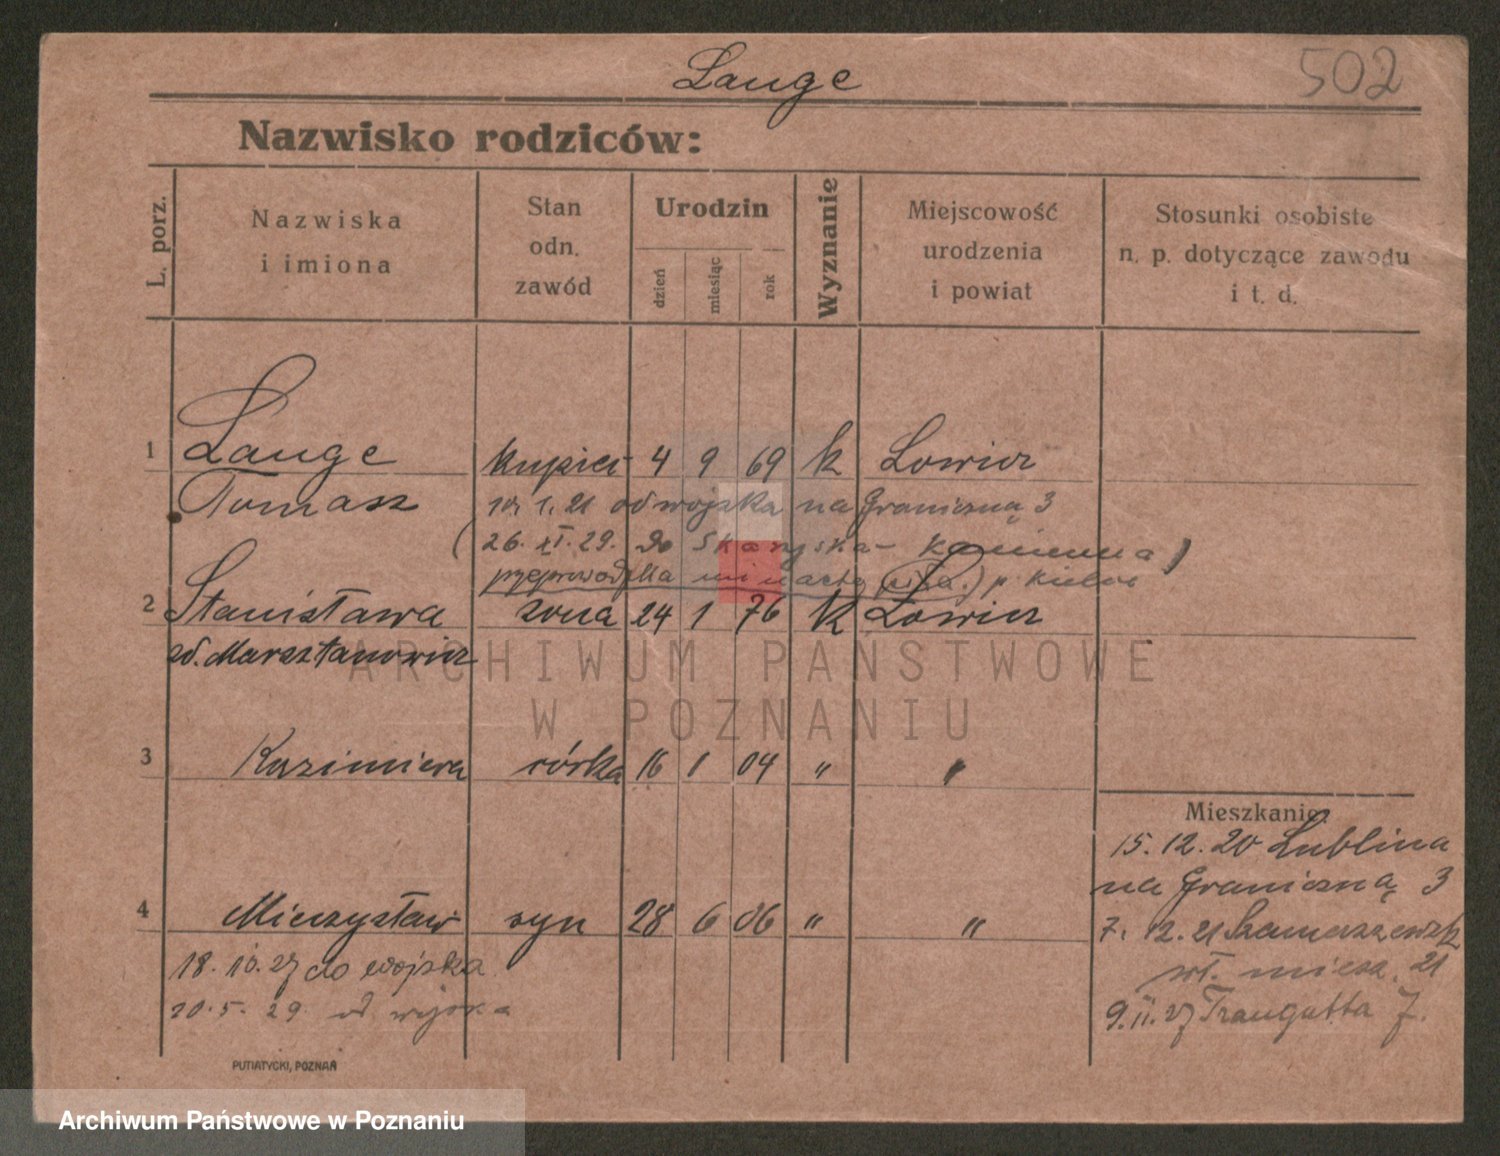 Lange
502
Nazwisko rodziców:
L. porz.
Nazwiska
i imiona
Stan
odn.
zawód
Urodzin
dzień
miesiąc
rok
Wyznanie
Miejscowość
urodzenia
i powiat
Stosunki osobiste
n. p. dotyczące zawodu
i t. d.
1 Lange kupiec 4 9 69 k Lowicz
Tomasz
10. 1. 21 od wojska na Graniczną 3
(26. XI. 29. do Skarżyska - Kamienna)
p. Kielce
2 Stanisława zona 24 1 76 k Lowicz
zd. Marsztanowicz
3 Kazimiera córka 16 1 04 " "
Mieszkanie:
15. 12. 20 Lublina
na Graniczną 3
4 Mieczysław syn 28 6 06 " "
7. 12. 21
wł. miesz. 21
18. 10. 27 do wojska
20. 5. 29 od wojska
9. II. 27 Traugutta 7.
PUTIATYCKI, POZNAŃ
ARCHIWUM PAŃSTWOWE
W POZNANIU
Archiwum Państwowe w Poznaniu